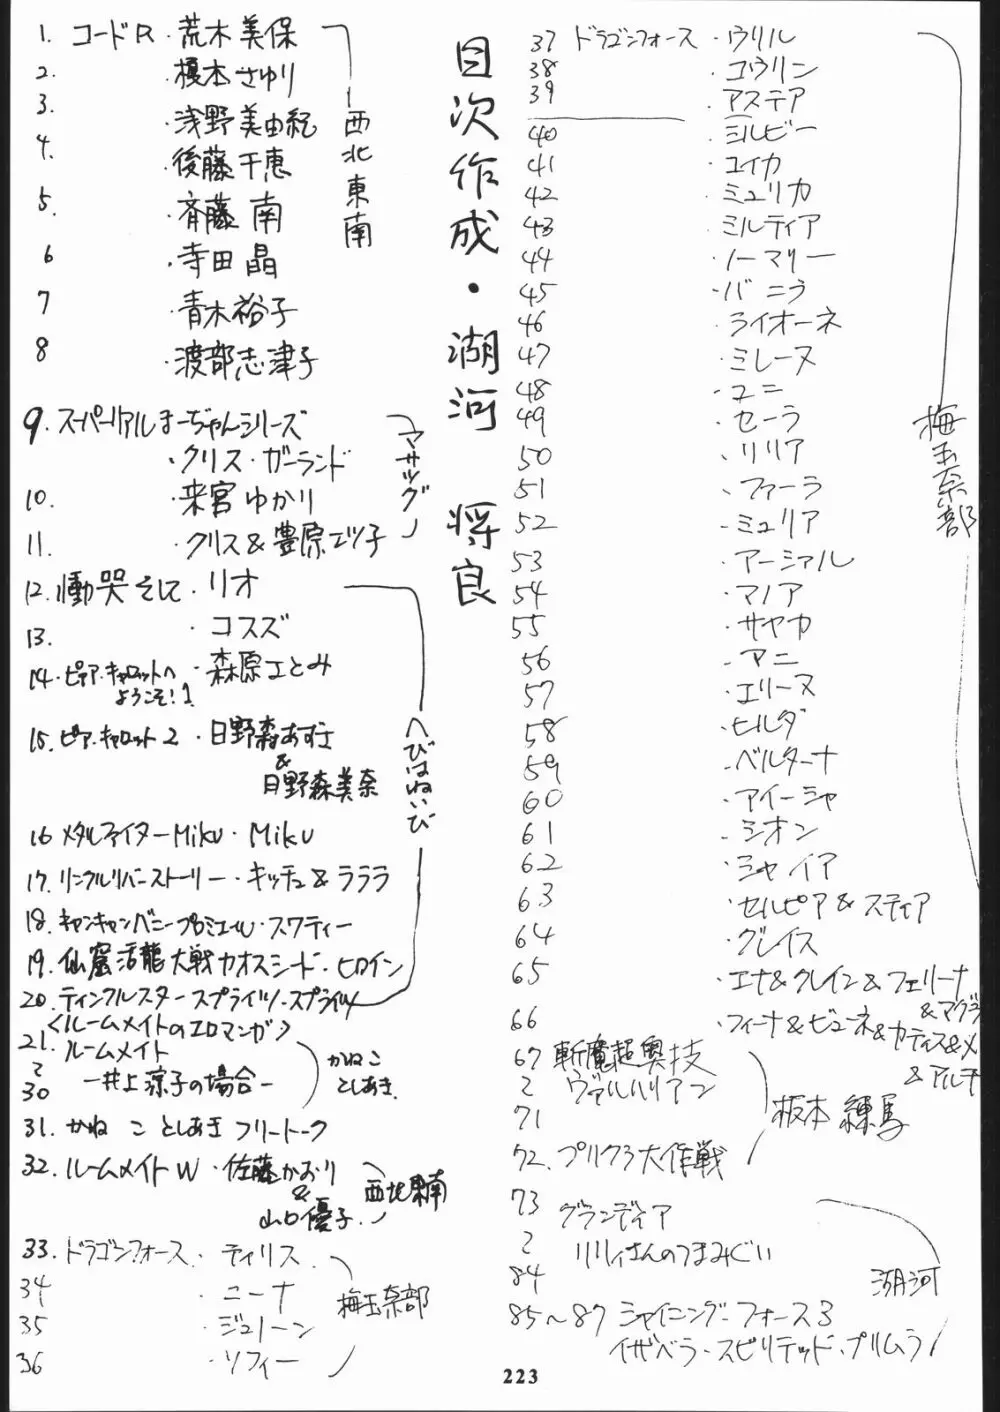 目次作成・湖河 将良
1. コードR・荒木美保
2. ・榎本さゆり
3. ・浅野美由紀
4. ・後藤千恵
5. ・斉藤南
6 ・寺田晶
7 ・青木裕子
8 ・渡部志津子
西北東南
9. スーパーリアルまーじゃんシリーズ
・クリス・ガーランド
10. ・来宮ゆかり
11. ・クリス&豊原エツ子
マサツグ
12. 慟哭そして・リオ
13. ・コスズ
14. ピア・キャロットへ
ようこそ!!
・森原さとみ
15. ピア・キャロット2・日野森あずさ
&
日野森美奈
16 メタルファイターMiku・Miku
17. リンクルリバーストーリー・キッチュ&ラララ
18. キャンキャンバニープルミエール・スワティー
19. 仙窟活龍大戦カオスシード・ヒロイン
20. ティンクルスタースプライツ・スプライツ
へびはねいび
<ルームメイトのエロマンガ>
21. ルームメイト
〜
30 ー井上涼子の場合ー
かねこ
としあき
31. かねことしあきフリートーク
32. ルームメイトW・佐藤かおり
&
山口優子
西北東南
33. ドラゴンフォース・ティリス
34 ・ニーナ
35 ・ジュノーン
36 ・ソフィー
梅玉奈部
37 ドラゴンフォース・ウリル
38 ・コウリン
39 ・アステア
40 ・シルビー
41 ・ユイカ
42 ・ミュリカ
43 ・ミルティア
44 ・ノーマリー
45 ・バニラ
46 ・ライオーネ
47 ・ミレーヌ
48 ・ユニ
49 ・セーラ
50 ・リリア
51 ・ファーラ
52 ・ミュリア
53 ・アーシァル
54 ・マノア
55 ・サヤカ
56 ・アニ
57 ・エリーヌ
58 ・ヒルダ
59 ・ベルターナ
60 ・アイーシャ
61 ・シオン
62 ・シャイア
63 ・セルピア&スティア
64 ・グレイス
65 ・エナ&クレイン&フェリーナ
&マグラ
66 ・フィーナ&ビューネ&カティス&メ
&アルナ
梅玉奈部
67 斬魔超奥技
〜 ヴァルハリアン
71
72. プリクラ大作戦
坂本練馬
73 グランディア
〜 リリィさんのつまみぐい
84
85〜87 シャイニング・フォース3
イザベラ・スピリテッド・プリムラ
湖河
223